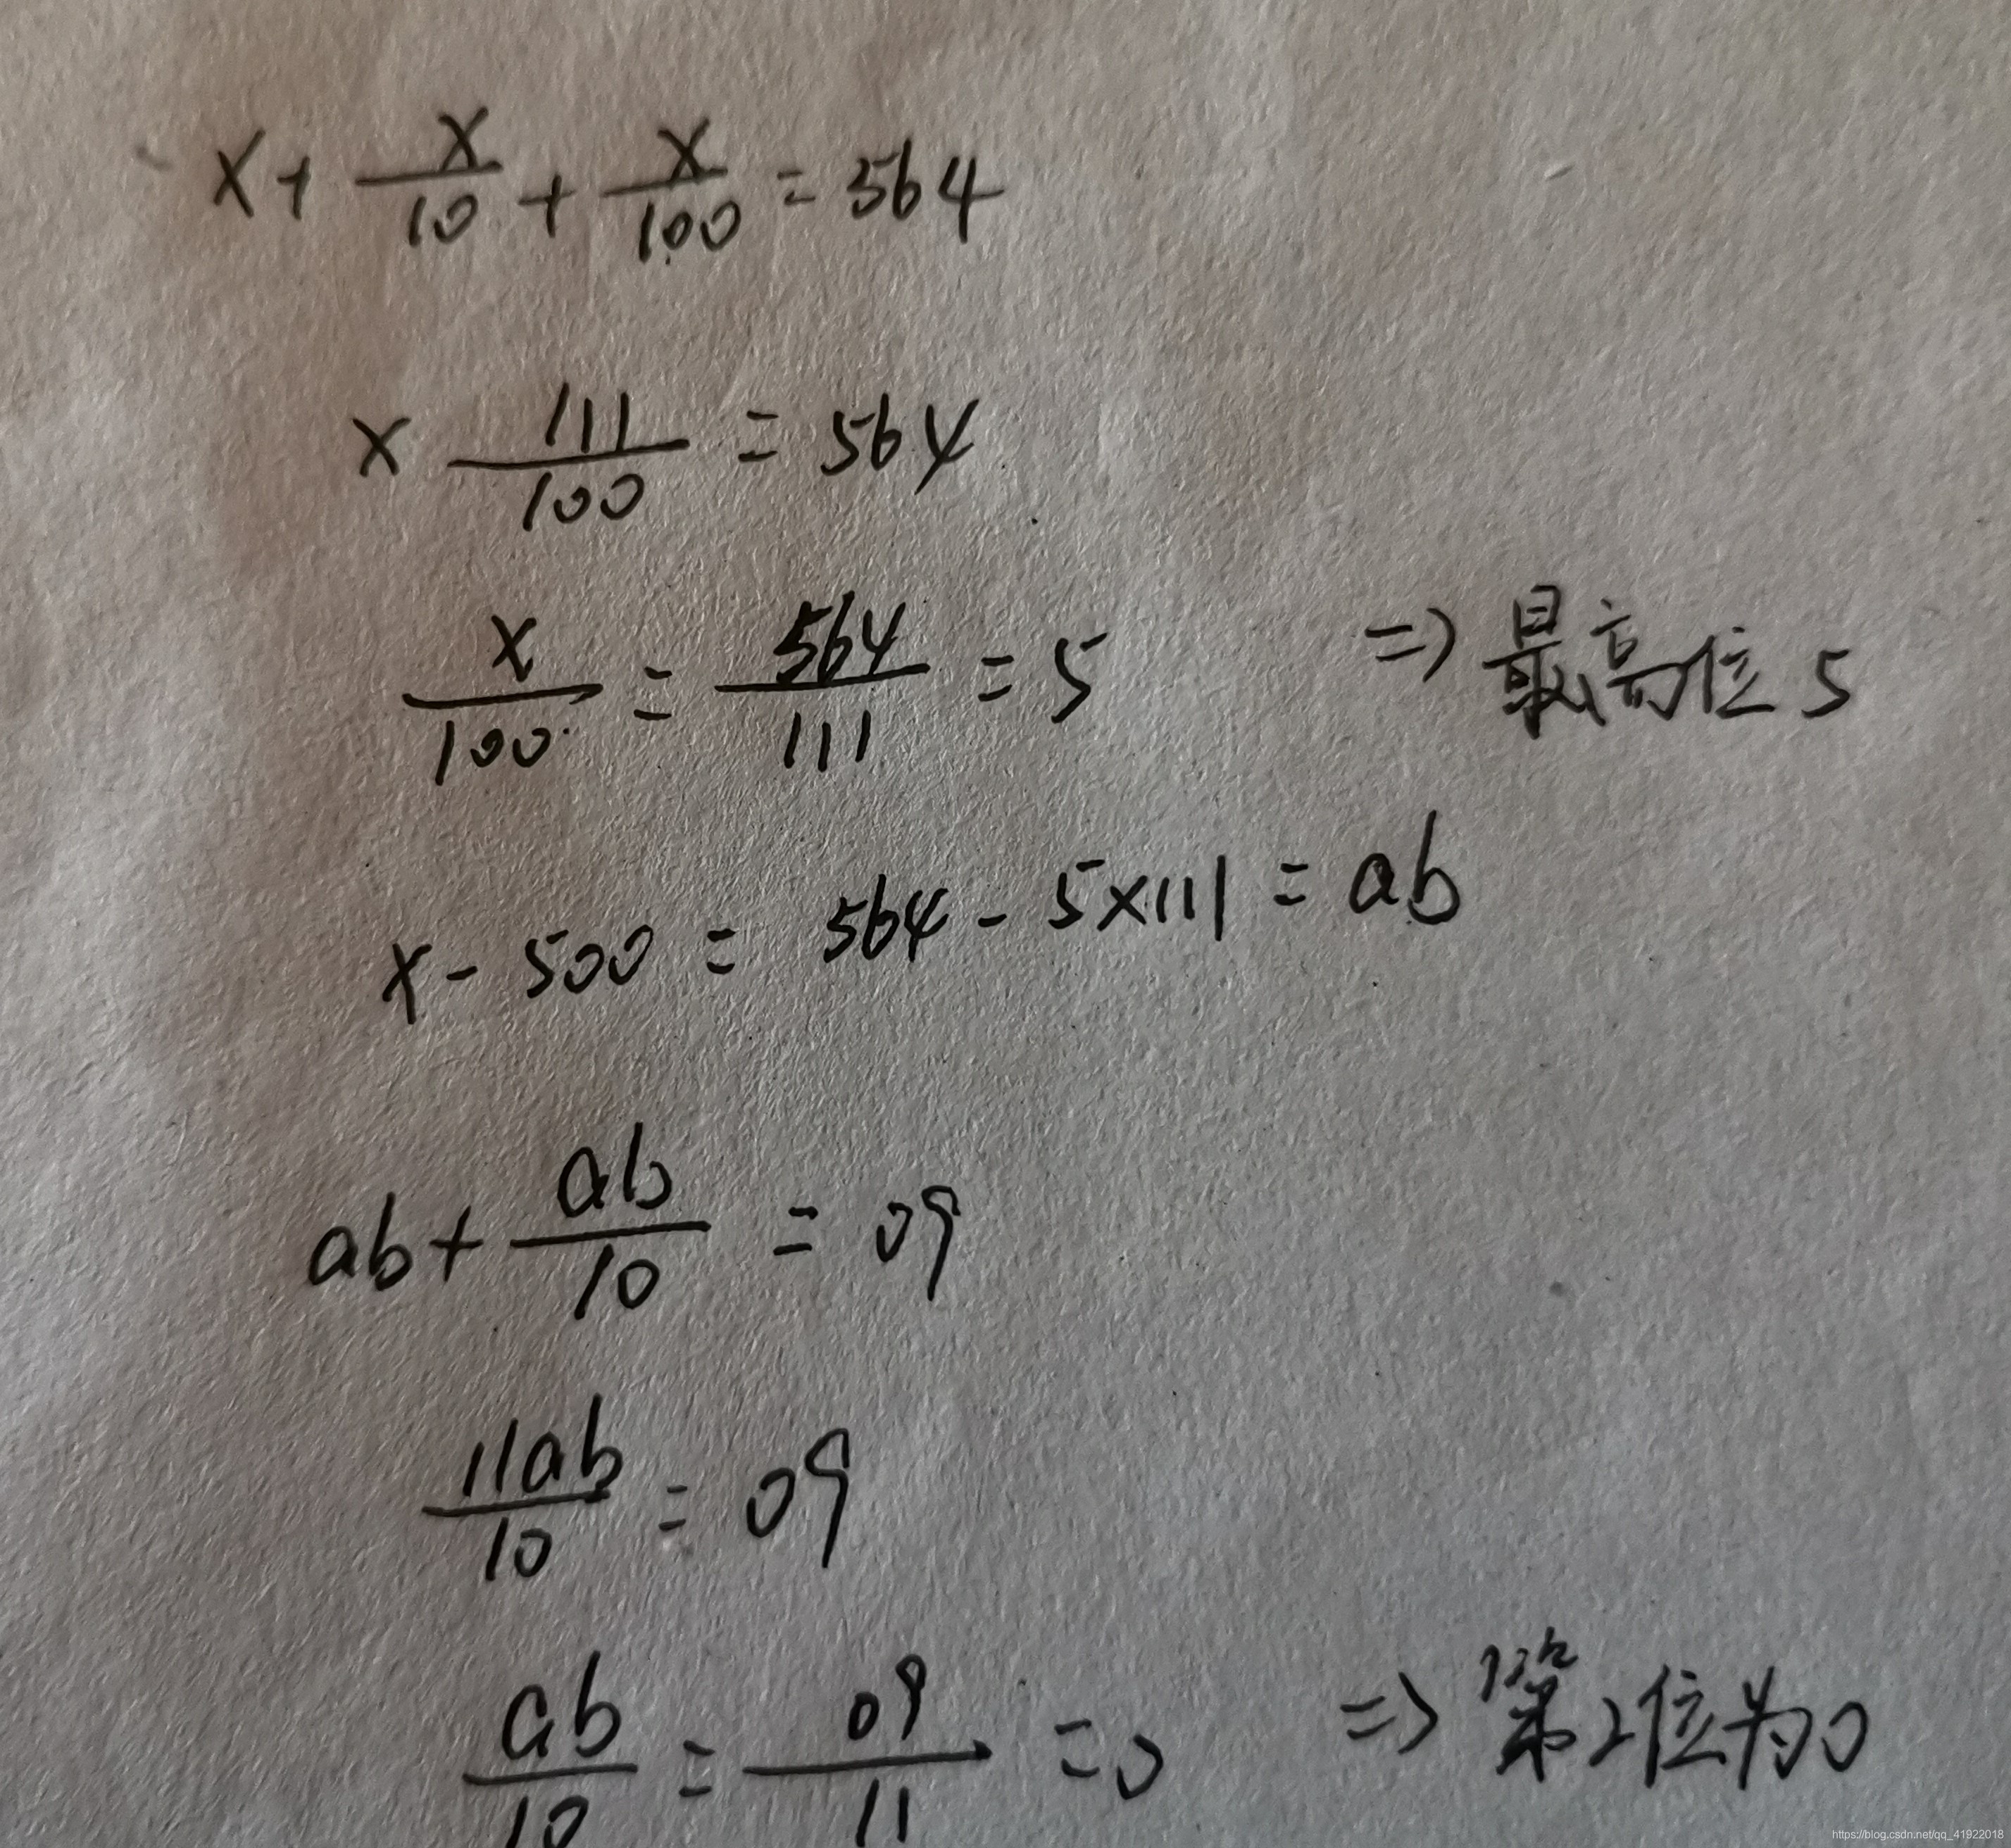 x + x/10 + x/100 = 564
x 111/100 = 564
x/100 = 564/111 = 5 => 最高位5
x - 500 = 564 - 5×111 = ab
ab + ab/10 = 09
11ab/10 = 09
ab/10 = 09/11 = 0 => 第2位为0
https://blog.csdn.net/qq_41922018